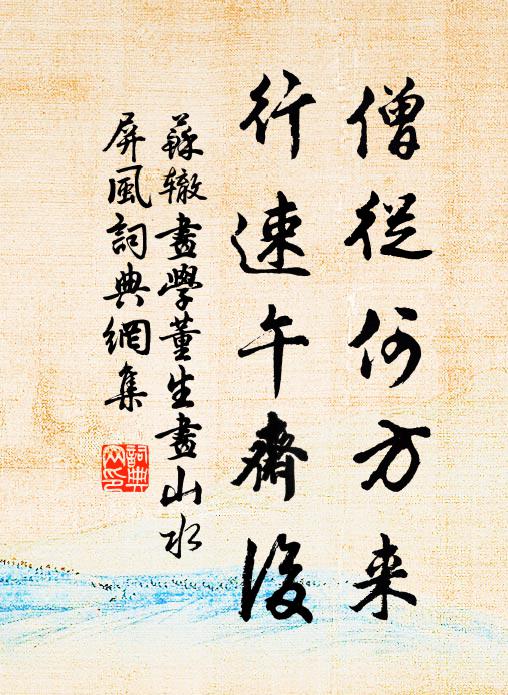 僧從何方来
行速午齋後
蘇辙畫學董生畫山水
屏風詞典網集
詞典
网印